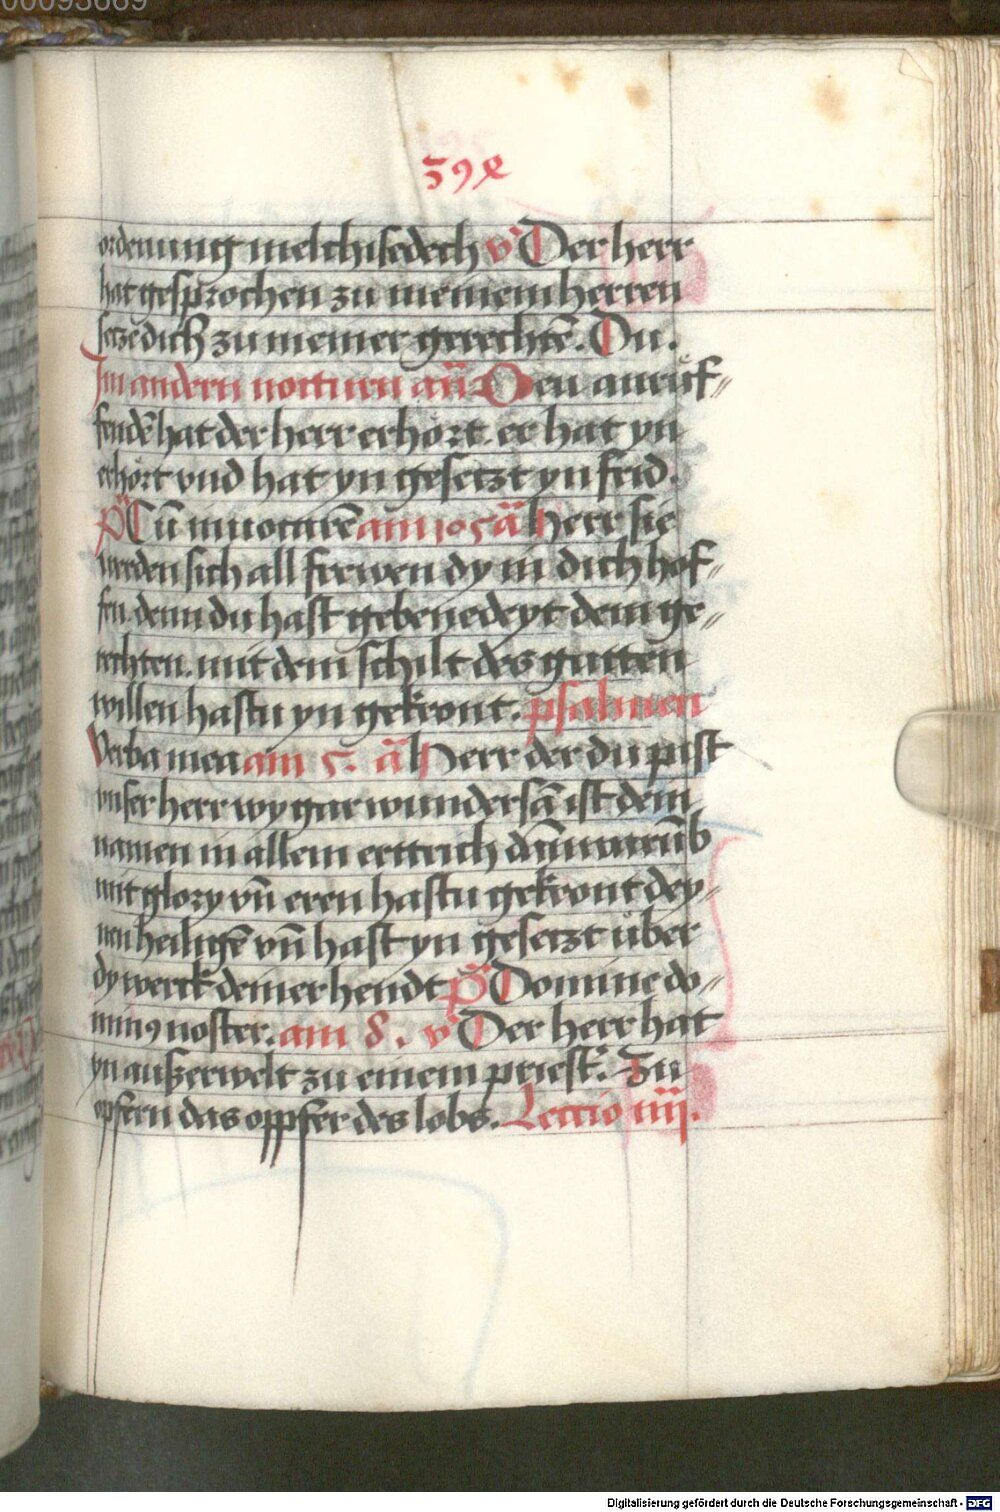 00093669
398
ordenung melchisedech v̉ Der herr
hat gesprochen zu meinem herren
setze dich zu meiner gerechtē. Du.
Im andern nocturn añ Den anrüf⸗
fendē hat der herr erhört. er hat yn
erhört vnd hat yn gesetzt yn frid.
Cū inuocarē am 105 ā Herr sie
werden sich all frewen dy in dich hof⸗
fen. denn du hast gebenedeyt dem ge⸗
rechten. mit dem schilt des gutten
willen hastu yn gekront. psalmen
Verba mea am 5. ā Herr der du pist
vnser herr wy gar wundersā ist dein
namen in allem erttrich
mit glory vñ eren hastu gekront dey⸗
nen heiligē vñ hast yn gesetzt über
dy werck deiner hendt p̄s Domine do⸗
minꝰ noster. am 8. v̉ Der herr hat
yn auszerwelt zu einem priestʼ. Zu
opfern das oppfer des lobs. Leccio iiij.
Digitalisierung gefördert durch die Deutsche Forschungsgemeinschaft - DFG